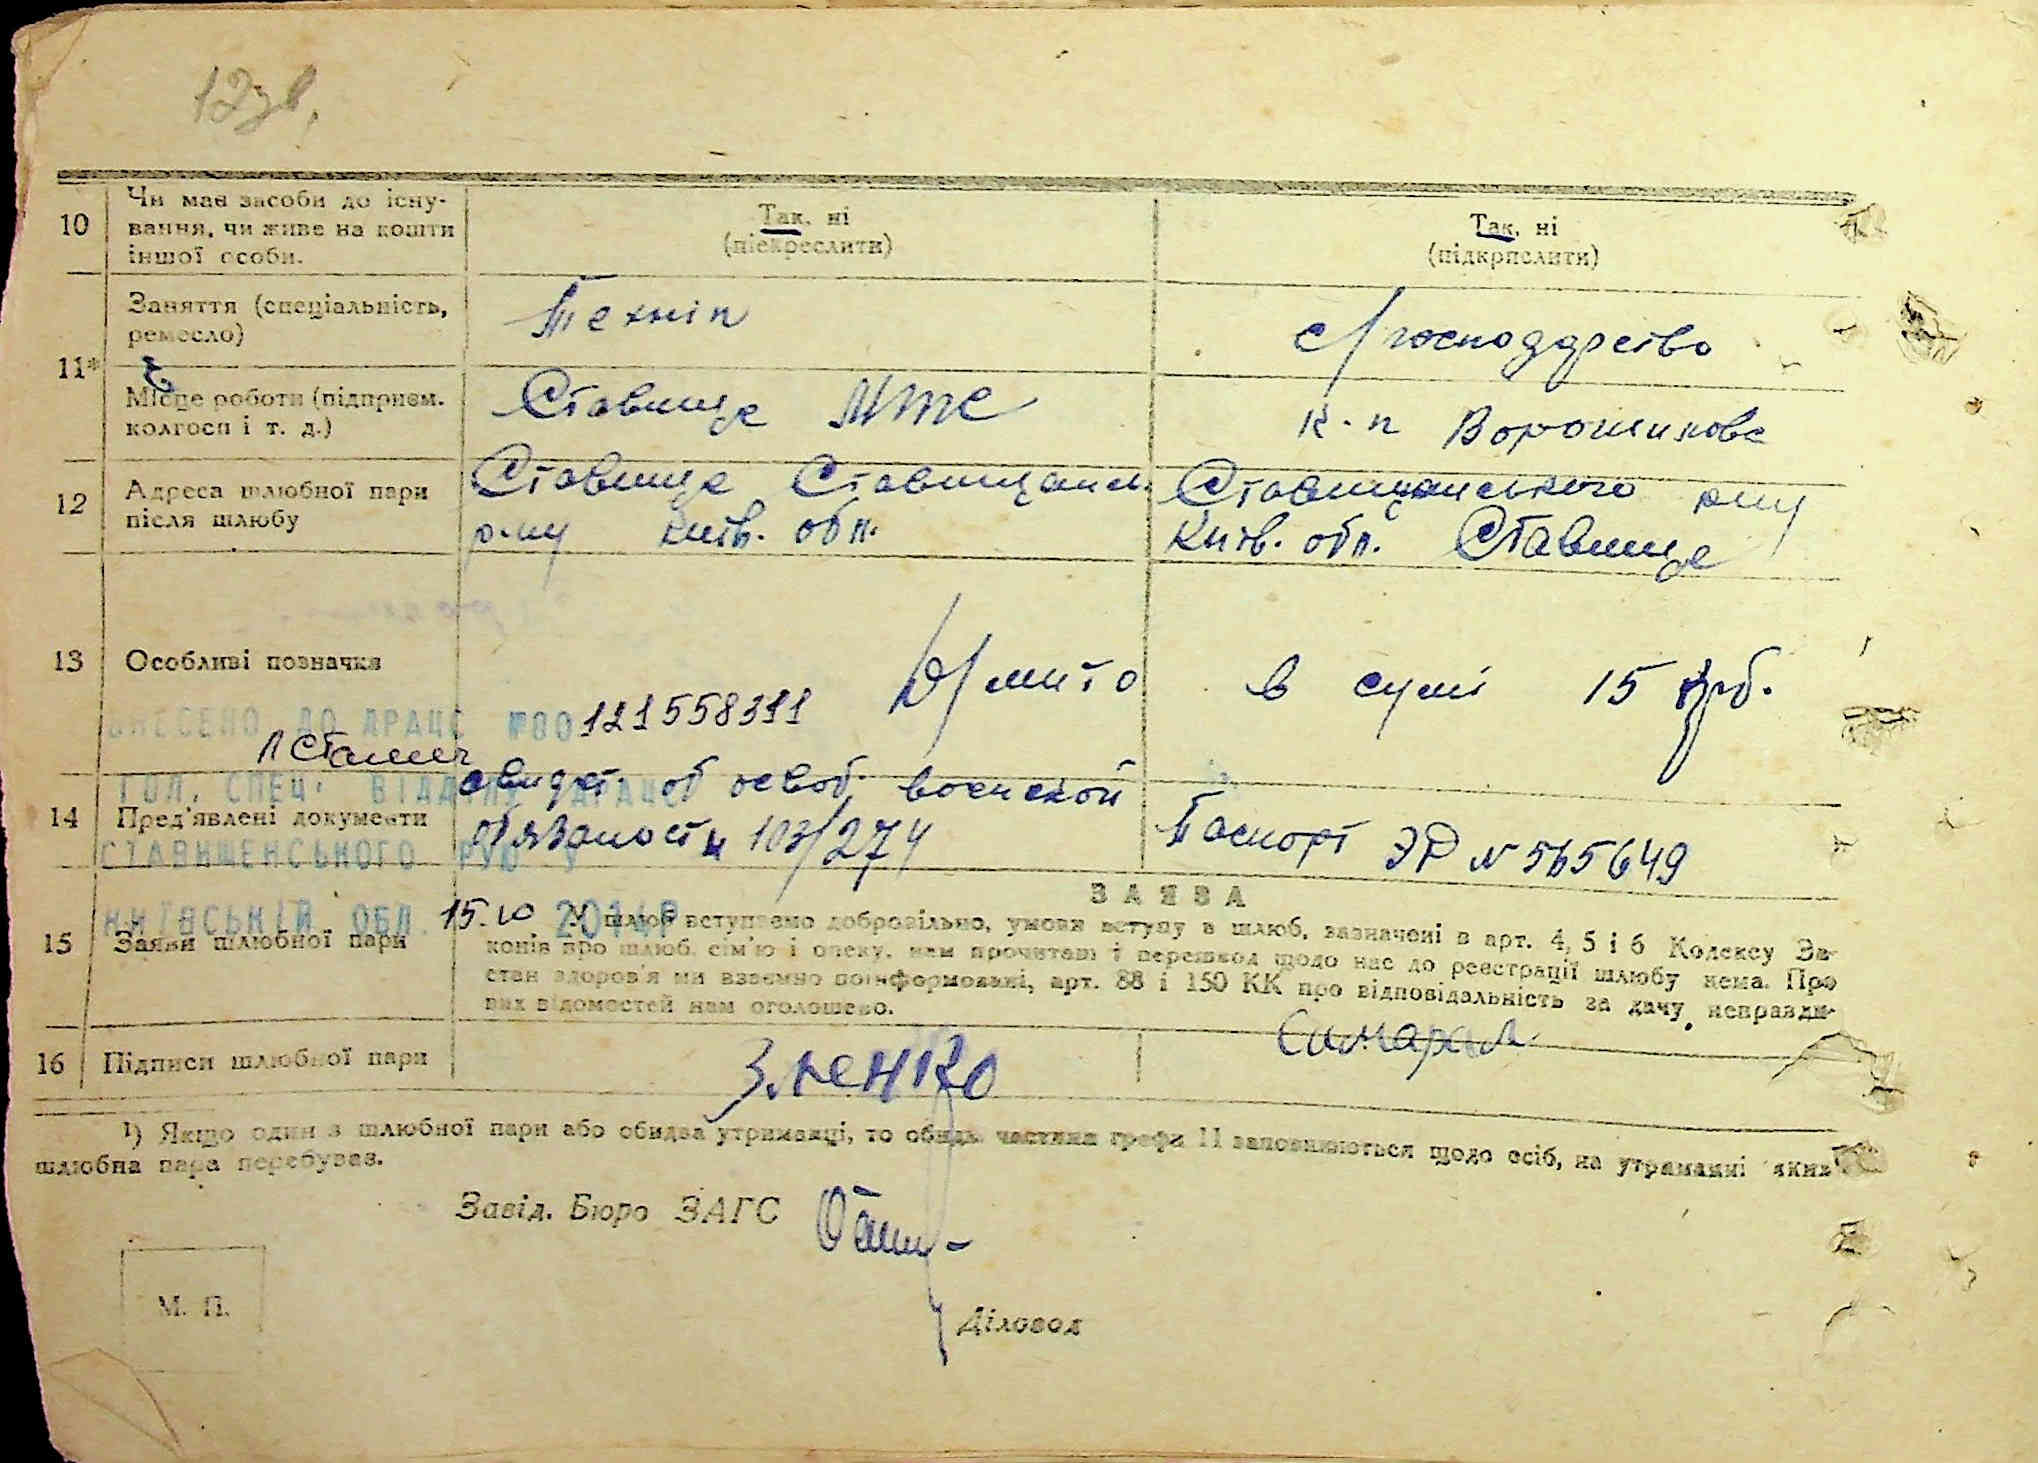 12зв.
10 Чи має засоби до існу-
вання, чи живе на кошти
іншої особи.
Так, ні
(підкреслити)
Так, ні
(підкреслити)
11*
Заняття (спеціальність,
ремесло)
Технік
с/господарство
Місце роботи (підприєм.
колгосп і т. д.)
Ставище МТС
к-п Ворошилова
12 Адреса шлюбної пари
після шлюбу
Ставище Ставищанськ.
р-ну Київ. обл.
Ставищанського р-ну
Київ. обл. Ставище
13 Особливі позначки
Д/мито в сумі 15 крб.
ВНЕСЕНО ДО ДРАЦС №00121558311
ГОЛ. СПЕЦ. ВІДДІЛУ ДРАЦС
СТАВИЩЕНСЬКОГО РУЮ У
КИЇВСЬКІЙ ОБЛ. 15.10 2014р
14 Пред'явлені документи
свидет. об освоб. воинской
обязаности 103/274
Паспорт ЭР № 565649
15 Заяви шлюбної пари
ЗАЯВА
У шлюб вступаємо добровільно, умови вступу в шлюб, зазначені в арт. 4, 5 і 6 Кодексу За-
конів про шлюб, сім'ю і опеку, нам прочитані і перешкод щодо нас до реєстрації шлюбу нема. Про
стан здоров'я ми взаємно поінформовані, арт. 88 і 150 КК про відповідальність за дачу неправди-
вих відомостей нам оголошено.
16 Підписи шлюбної пари
Зленко
1) Якщо один з шлюбної пари або обидва утриманці, то обидві частини графи 11 заповнюються щодо осіб, на утриманні яких
шлюбна пара перебуває.
Завід. Бюро ЗАГС
М. П.
Діловод